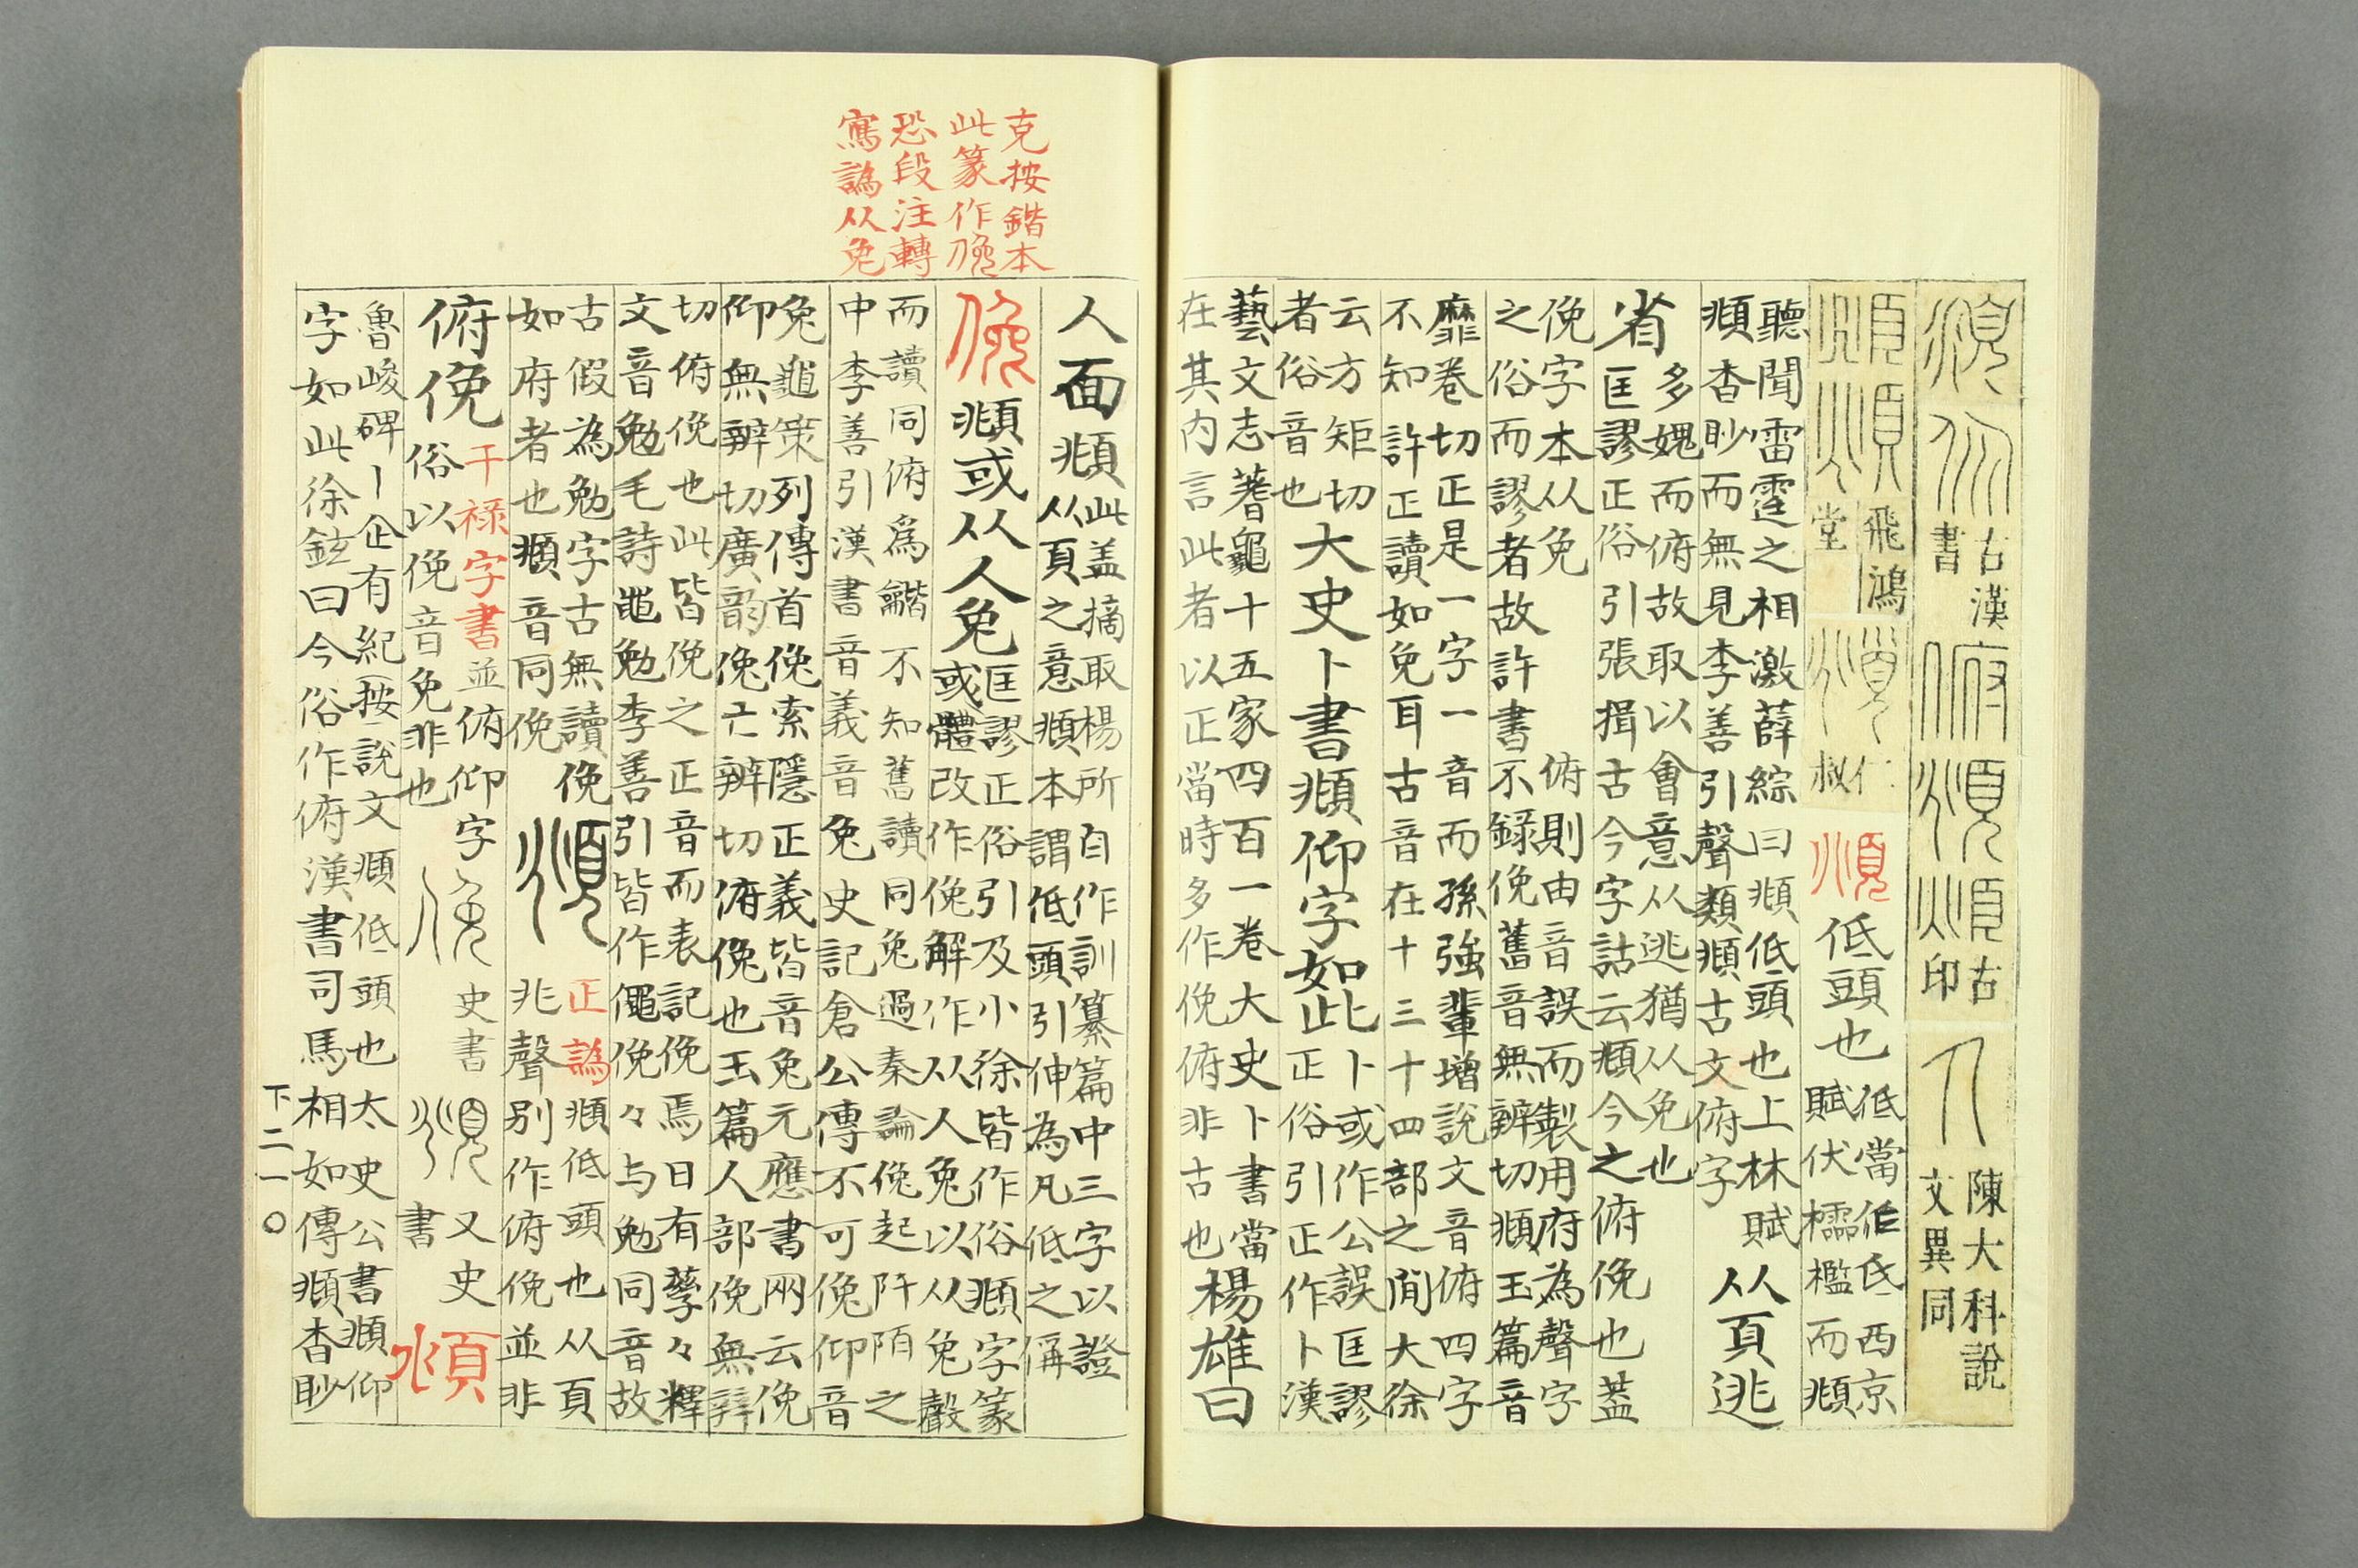 古漢
書
古
印
陳大科說
文異同
飛鴻
堂
低頭也
低當作低西京
賦伏櫺檻而頫
聽聞雷霆之相激薛綜曰頫低頭也上林賦
頫杳眇而無見李善引聲類頫古文俯字
从頁逃
省
多媿而俯故取以會意从逃猶从免也
匡謬正俗引張揖古今字詁云頫今之俯俛也蓋
俛字本从免
俯則由音誤而製用府為聲字
之俗而謬者故許書不錄俛舊音無辨切頫玉篇音
靡卷切正是一字一音而孫強輩增說文音俯四字
不知許正讀如免耳古音在十三十四部之間大徐
云方矩切
者俗音也
大史卜書頫仰字如此
卜或作公誤匡謬
正俗引正作卜漢
藝文志蓍龜十五家四百一卷大史卜書當
在其内言此者以正當時多作俛俯非古也
楊雄曰
克按鍇本
此篆作
恐段注轉
寫譌从免
人面頫
此盖摘取楊所自作訓纂篇中三字以證
从頁之意頫本謂低頭引伸為凡低之偁
頫或从人免
匡謬正俗引及小徐皆作俗頫字篆
或體改作俛解作从人免以从兔聲
而讀同俯爲鍇不知舊讀同兔過秦論俛起阡陌之
中李善引漢書音義音兔史記倉公傳不可俛仰音
兔龜策列傳首俛索隱正義皆音兔元應書兩云俛
仰無辨切廣韵俛亡辨切俯俛也玉篇人部俛無辨
切俯俛也此皆俛之正音而表記俛焉日有孳々釋
文音勉毛詩黽勉李善引皆作僶俛々与勉同音故
古假為勉字古無讀俛
如府者也頫音同俛
正譌頫低頭也从頁
兆聲别作俯俛並非
俯俛
干禄字書並俯仰字
俗以俛音免非也
史書
又史
書
魯峻碑丨企有紀按說文頫低頭也太史公書頫仰
字如此徐鉉曰今俗作俯漢書司馬相如傳頫杳眇
下二一〇